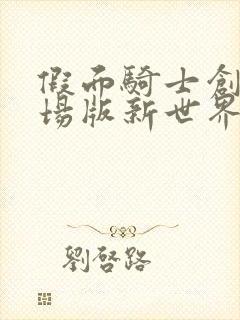 假面騎士創
場版新世界
劉啓路